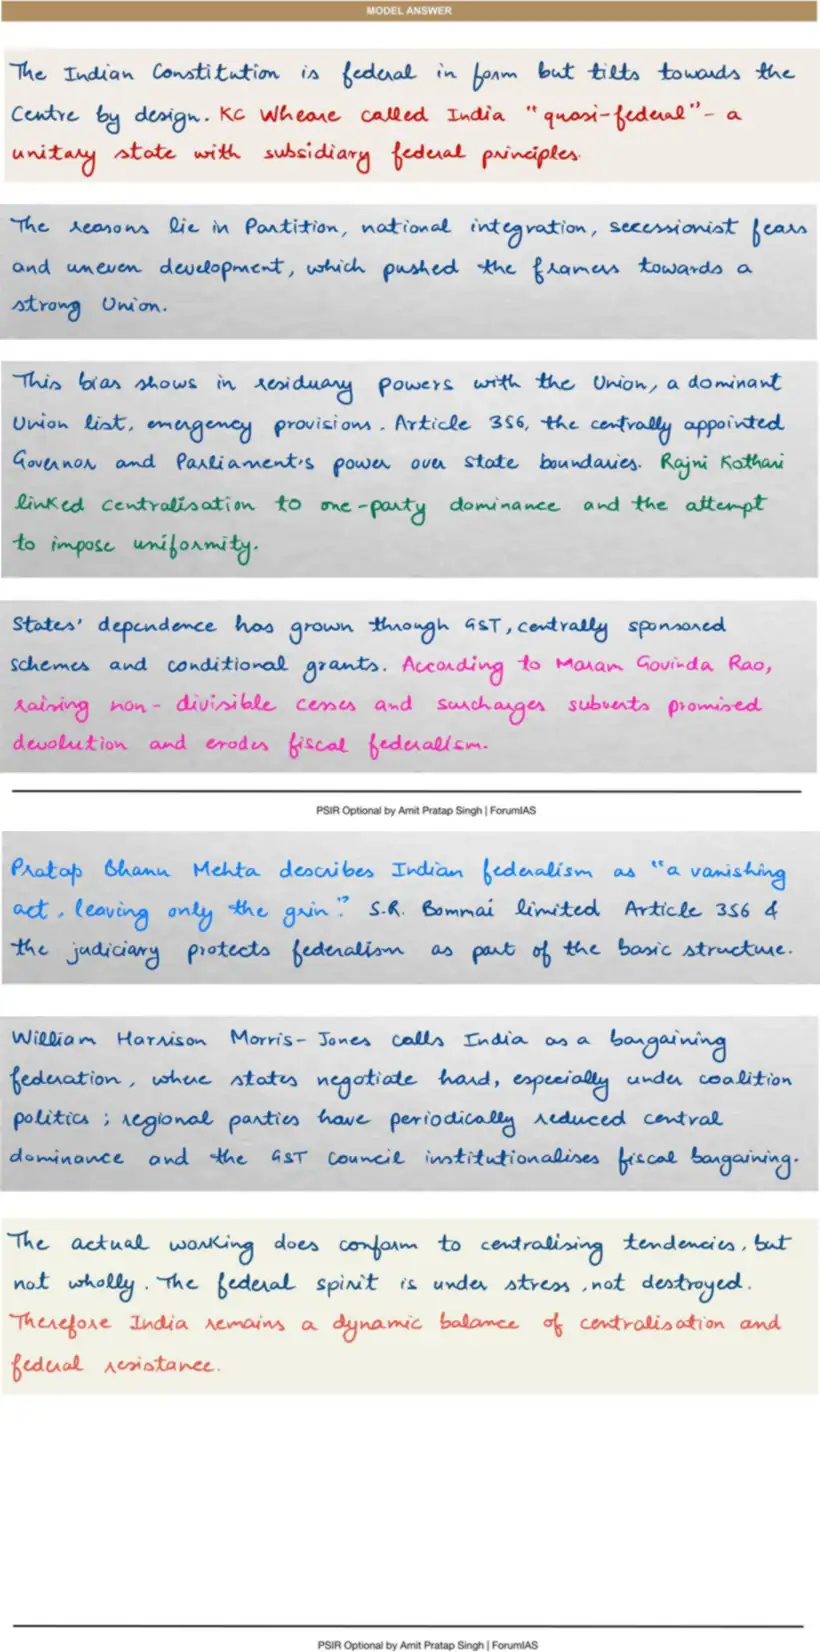 MODEL ANSWER
The Indian Constitution is federal in form but tilts towards the
Centre by design. KC Wheare called India "quasi-federal" - a
unitary state with subsidiary federal principles.
The reasons lie in Partition, national integration, secessionist fears
and uneven development, which pushed the framers towards a
strong Union.
This bias shows in residuary powers with the Union, a dominant
Union list, emergency provisions. Article 356, the centrally appointed
Governor and Parliament's power over state boundaries. Rajni Kothari
linked centralisation to one-party dominance and the attempt
to impose uniformity.
States' dependence has grown through GST, centrally sponsored
schemes and conditional grants. According to Maram Govinda Rao,
raising non-divisible cesses and surcharges subverts promised
devolution and erodes fiscal federalism.
PSIR Optional by Amit Pratap Singh | ForumIAS
Pratap Bhanu Mehta describes Indian federalism as "a vanishing
act, leaving only the grin". S.R. Bommai limited Article 356 &
the judiciary protects federalism as part of the basic structure.
William Harrison Morris-Jones calls India as a bargaining
federation, where states negotiate hard, especially under coalition
politics; regional parties have periodically reduced central
dominance and the GST Council institutionalises fiscal bargaining.
The actual working does conform to centralising tendencies, but
not wholly. The federal spirit is under stress, not destroyed.
Therefore India remains a dynamic balance of centralisation and
federal resistance.
PSIR Optional by Amit Pratap Singh | ForumIAS